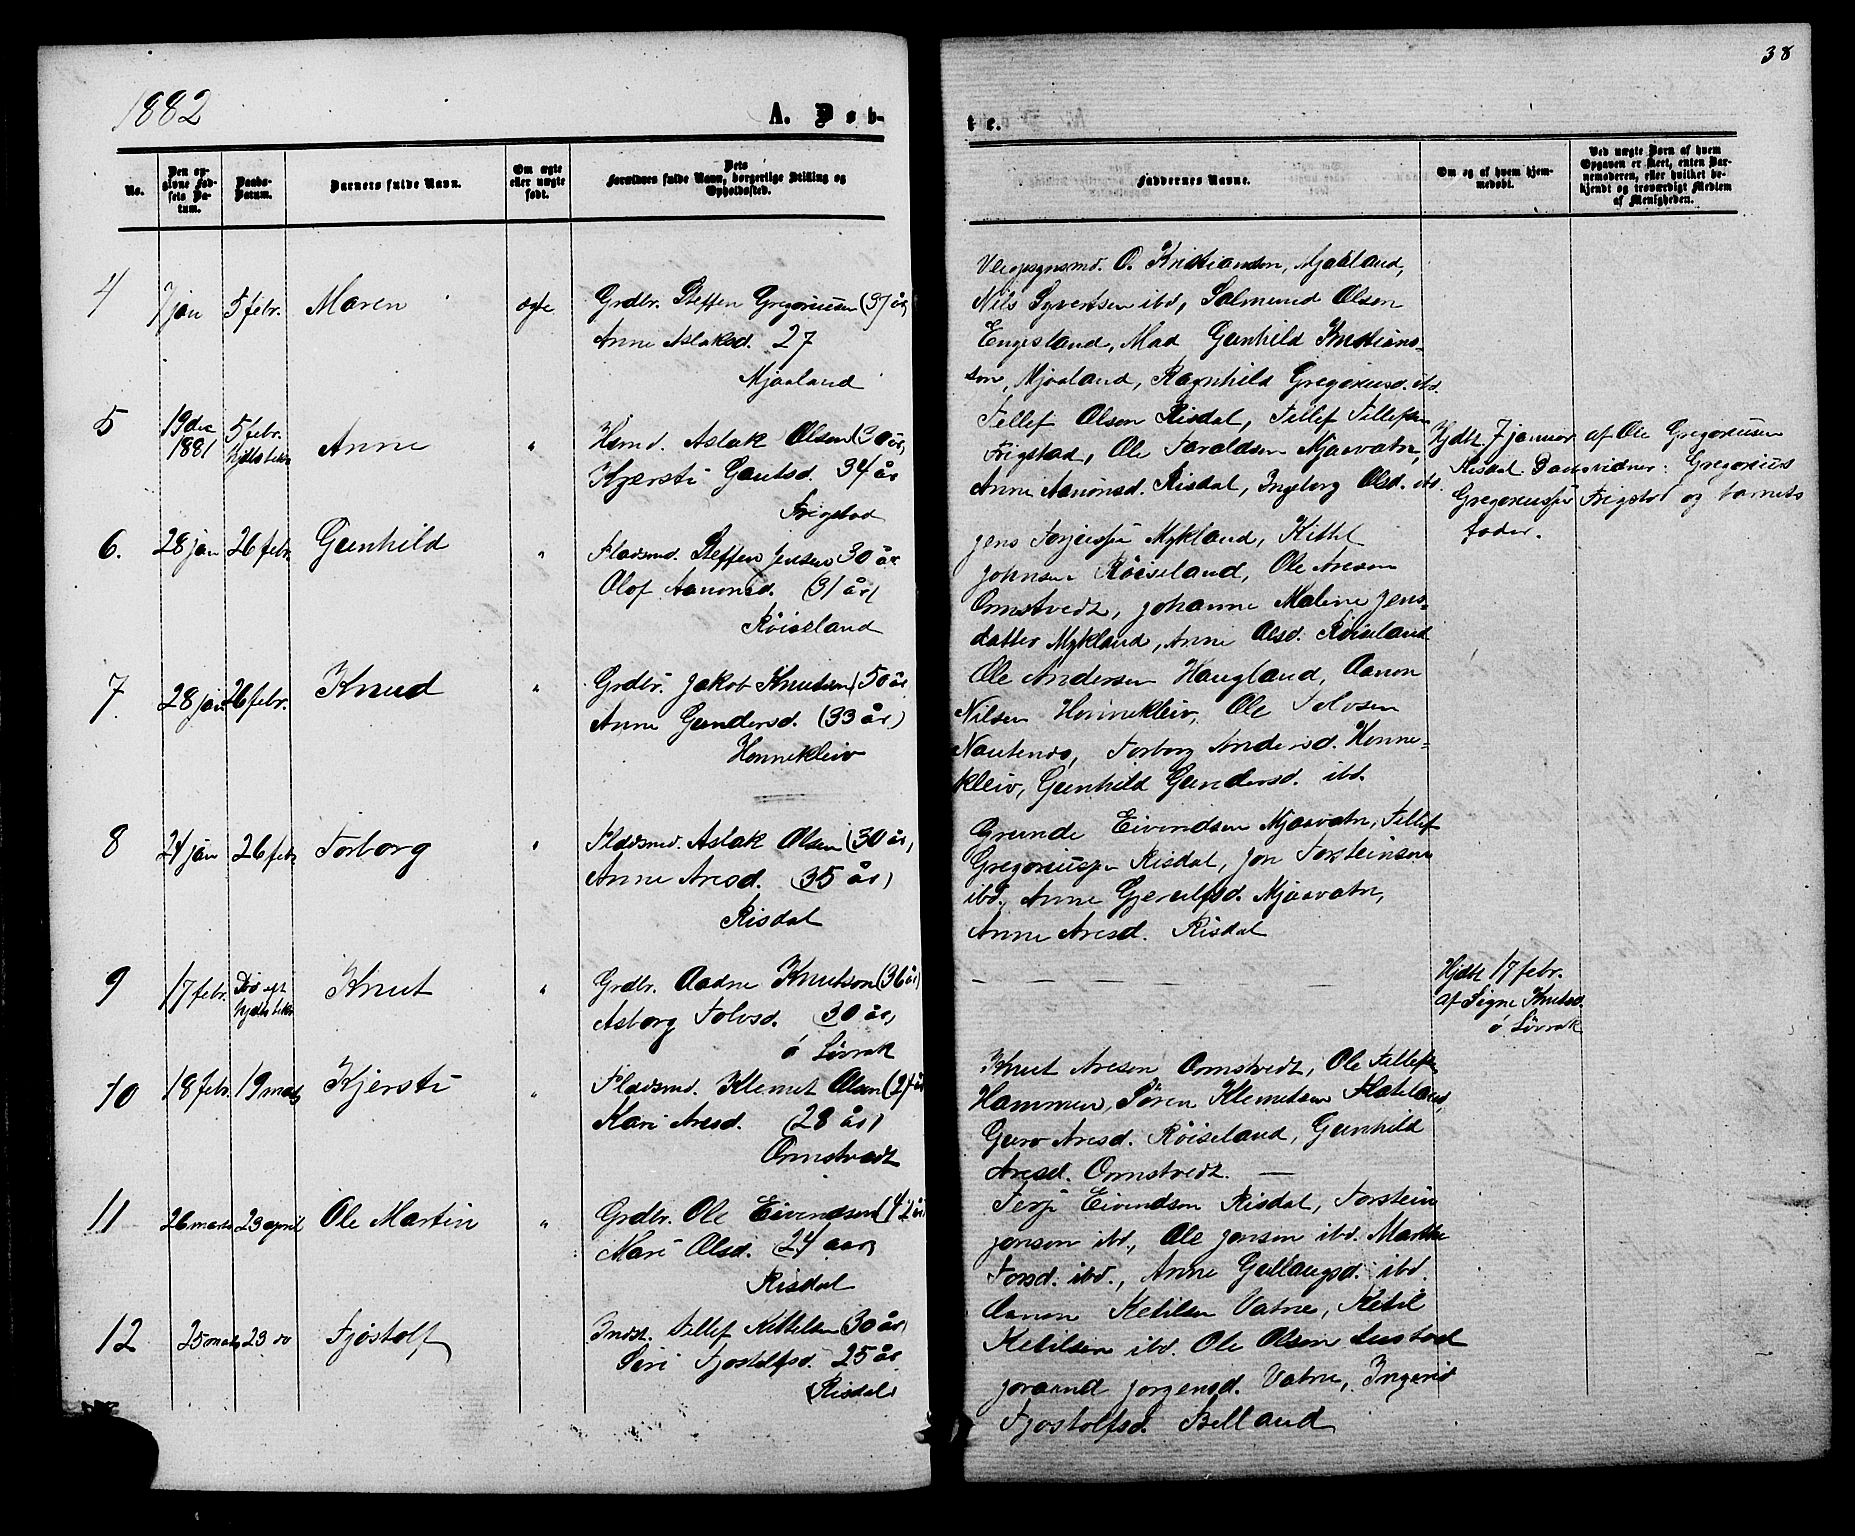 1882
A. Døb-
No.
Den opgivne Fødsels Datum.
Daabs-Datum.
Barnets fulde Navn.
Om ægte eller uægte født.
Forældres fulde Navn, borgerlige Stilling og Opholdssted.
4 7 jan 5 febr. Maren ægte Grdbr. Steffen Gregoriusen (37 år,
Anne Aslaksd. 27
Mjaaland
5 19 dec 1881 5 febr. hjdbt bekr Anne " Hsmd. Aslak Olsen (30 år,
Kjersti Gautsd. 34 år
Frigstad
6. 28 jan 26 febr. Gunhild " Pladsmd. Steffen Jensen 30 år
Olof Aanonsd. (31 år)
Röiseland
7 28 jan 26 febr. Knud " Grdbr. Jakob Knutsen (50 år
Anne Gundersd. (33 år)
Honnekleiv
8 24 jan 26 febr Torborg " Pladsmd. Aslak Olsen (30 år,
Anne Aresd. (35 år)
Risdal
9 17 febr. hjdbt bekr Knut " Grdbr. Aadne Knutson (36 år
Asborg Tolvsd. 30 år,
ö Lövrak
10 18 febr. 19 mars Kjersti " Pladsmd. Klemet Olsen (27 år
Kari Aresd. (28 år)
Ormstvedt
11 26 marts 23 april Ole Martin " Grdbr. Ole Eivendsen (42 år
Mari Olsd. (24 aar)
Risdal
12 25 marts 23 do Fjöstolf Indst. Tellef Kittelsen (30 år)
Siri Fjostolfsd. 25 år
(Risdal)
38
te.
Faddernes Navne.
Om og af hvem hjemmedøbt.
Ved uægte Børn af hvem Opgaven er skeet, enten Barnemoderen, eller hvilket bekjendt og troværdigt Medlem af Menigheden.
O. Kristiansen, Mjaaland,
Nils Syvertsen ibd, Salmund Olsen
Engesland, Mad Gunhild Kristians-
sen, Mjaaland, Ragnhild Gregoriusd. ibd
Tellef Olsen Risdal, Tellef Tellefsen
Frigstad, Ole Taraldsen Mjaavatn,
Anne Aanonsd. Risdal, Ingeborg Olsd. ibd
Hjdbt 7 januar af Ole Gregoriusen
Risdal. Daabsvidner: Gregorius
Gregoriuss Frigstad og barnets
fader.
Jens Terjess Mykland, Kittel
Johnsen Röiseland, Ole Aresen
Ormstvedt, Johanne Maline Jens-
datter Mykland, Anne Olsd. Röiseland
Ole Andersen Haugland, Aanon
Nilsen Honnekleiv, Ole Tolvsen
Torborg Andersd. Honne-
kleiv, Gunhild Gundersd. ibd.
Grunde Eivendsen Mjaavatn, Tellef
Gregoriuss Risdal, Jon Torsteinsen
ibd. Anne Gjerulfsd. Mjaavatn,
Anne Aresd. Risdal
Hjdbt 17 febr.
af Signe Knutsd.
ö Lövrak
Knut Aresen Ormstvedt, Ole Tellefsen
Hammen, Sören Klemetsen Flateland,
Guro Aresd. Röiseland, Gunhild
Aresd. Ormstvedt. —
Terje Eivendsen Risdal, Torstein
Jonsen ibd., Ole Jonsen ibd. Marthe
Torsd. ibd., Anne Gullaugsd. ibd.
Aanon Ketilsen Vatne, Ketil
Ketilsen ibd. Ole Olsen
Joraand Jorgensd. Vatne, Ingerid
Fjostolfsd. Belland